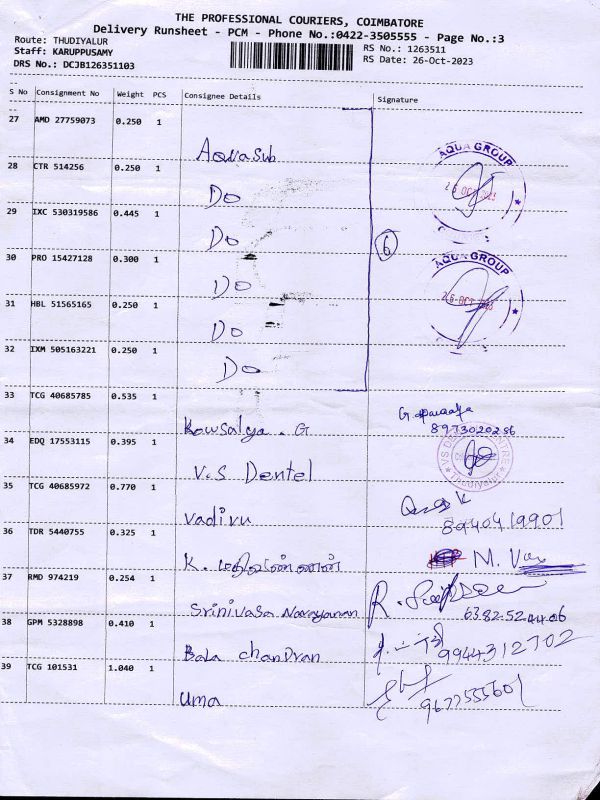 THE PROFESSIONAL COURIERS, COIMBATORE
Delivery Runsheet - PCM - Phone No.:0422-3505555 - Page No.:3
Route: THUDIYALUR
Staff: KARUPPUSAMY
DRS No.: DCJB126351103
RS No.: 1263511
RS Date: 26-Oct-2023
S No Consignment No Weight PCS Consignee Details Signature
27 AMD 27759073 0.250 1
Aquasub
AQUA GROUP
28 CTR 514256 0.250 1
Do
26 OCT 2023
29 IXC 530319586 0.445 1
Do
6
30 PRO 15427128 0.300 1
Do
AQUA GROUP
31 HBL 51565165 0.250 1
Do
26 OCT 2023
32 IXM 505163221 0.250 1
Do
33 TCG 40685785 0.535 1
Kowsalya . G
8973020256
34 EDQ 17553115 0.395 1
V.S Dentel
35 TCG 40685972 0.770 1
Vadivu
8940419901
36 TDR 5440755 0.325 1
K.
M.
37 RMD 974219 0.254 1
Srinivasa Narayanan
R.
63.82.52 44.06
38 GPM 5328898 0.410 1
Bala chandran
9944312702
39 TCG 101531 1.040 1
Uma
9677555601